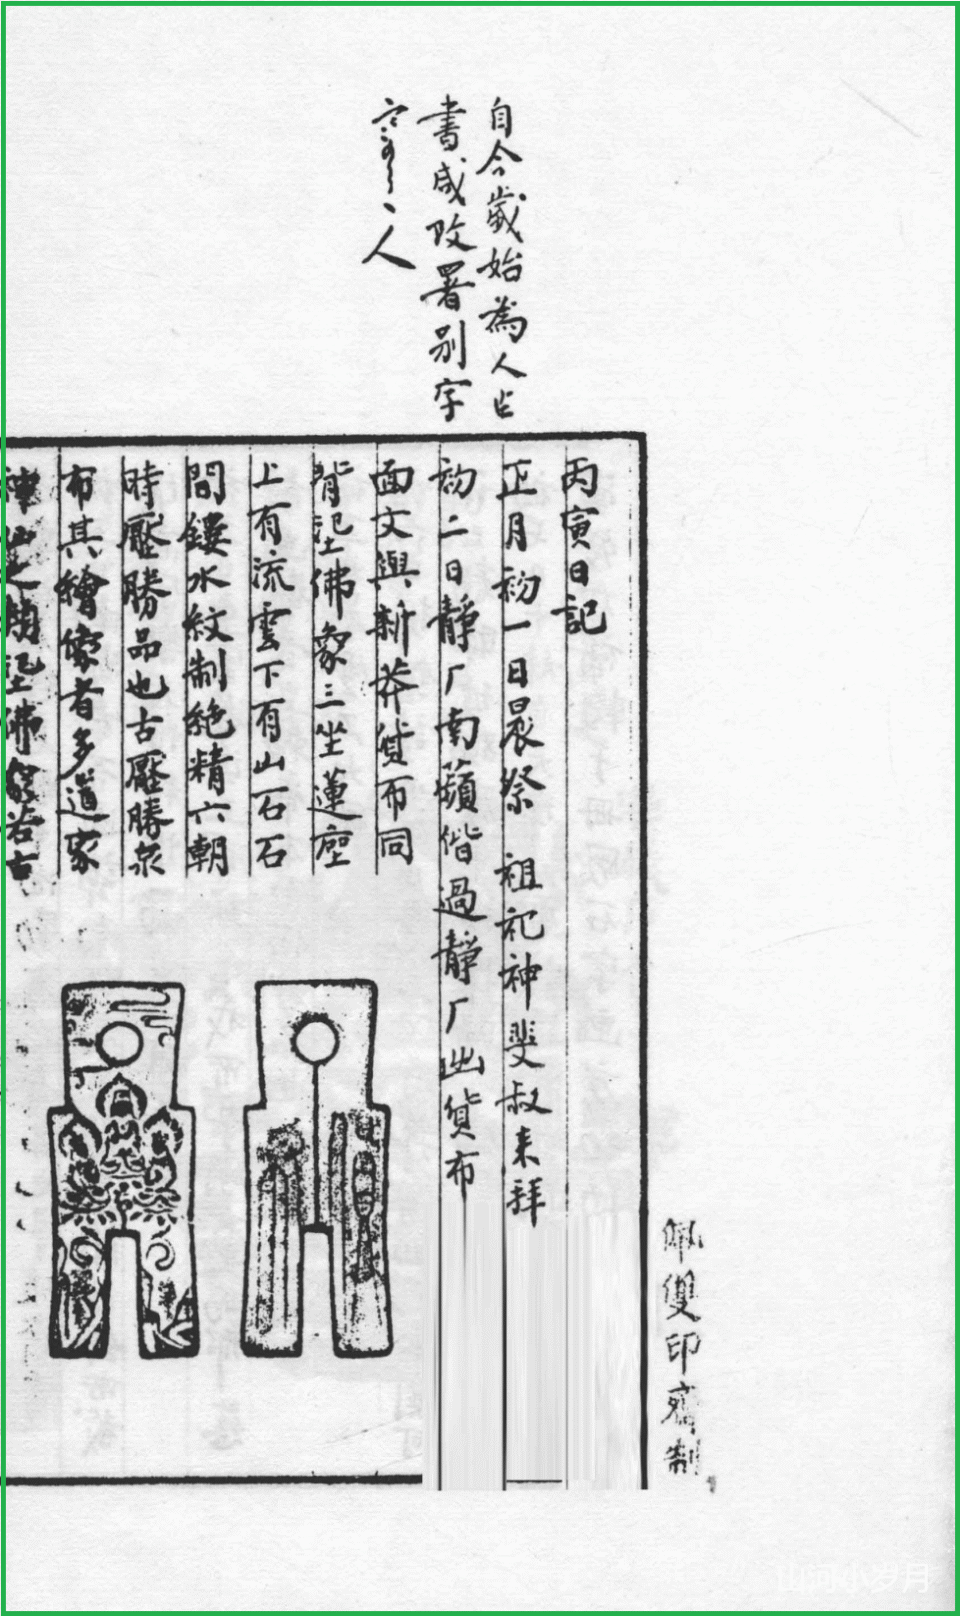 自今歲始為人占
書咸改署別字
寒雲〻人
丙寅日記
正月初一日晨祭　祖祀神斐叔來拜
初二日靜厂南蘋偕過靜厂出貨布
面文與新莽貨布同
背范佛象三坐蓮座
上有流雲下有山石石
間鏤水紋制絕精六朝
時壓勝品也古壓勝泉
布其繪像者多道家
神
佛
若古
佩雙印齋制
山河小岁月